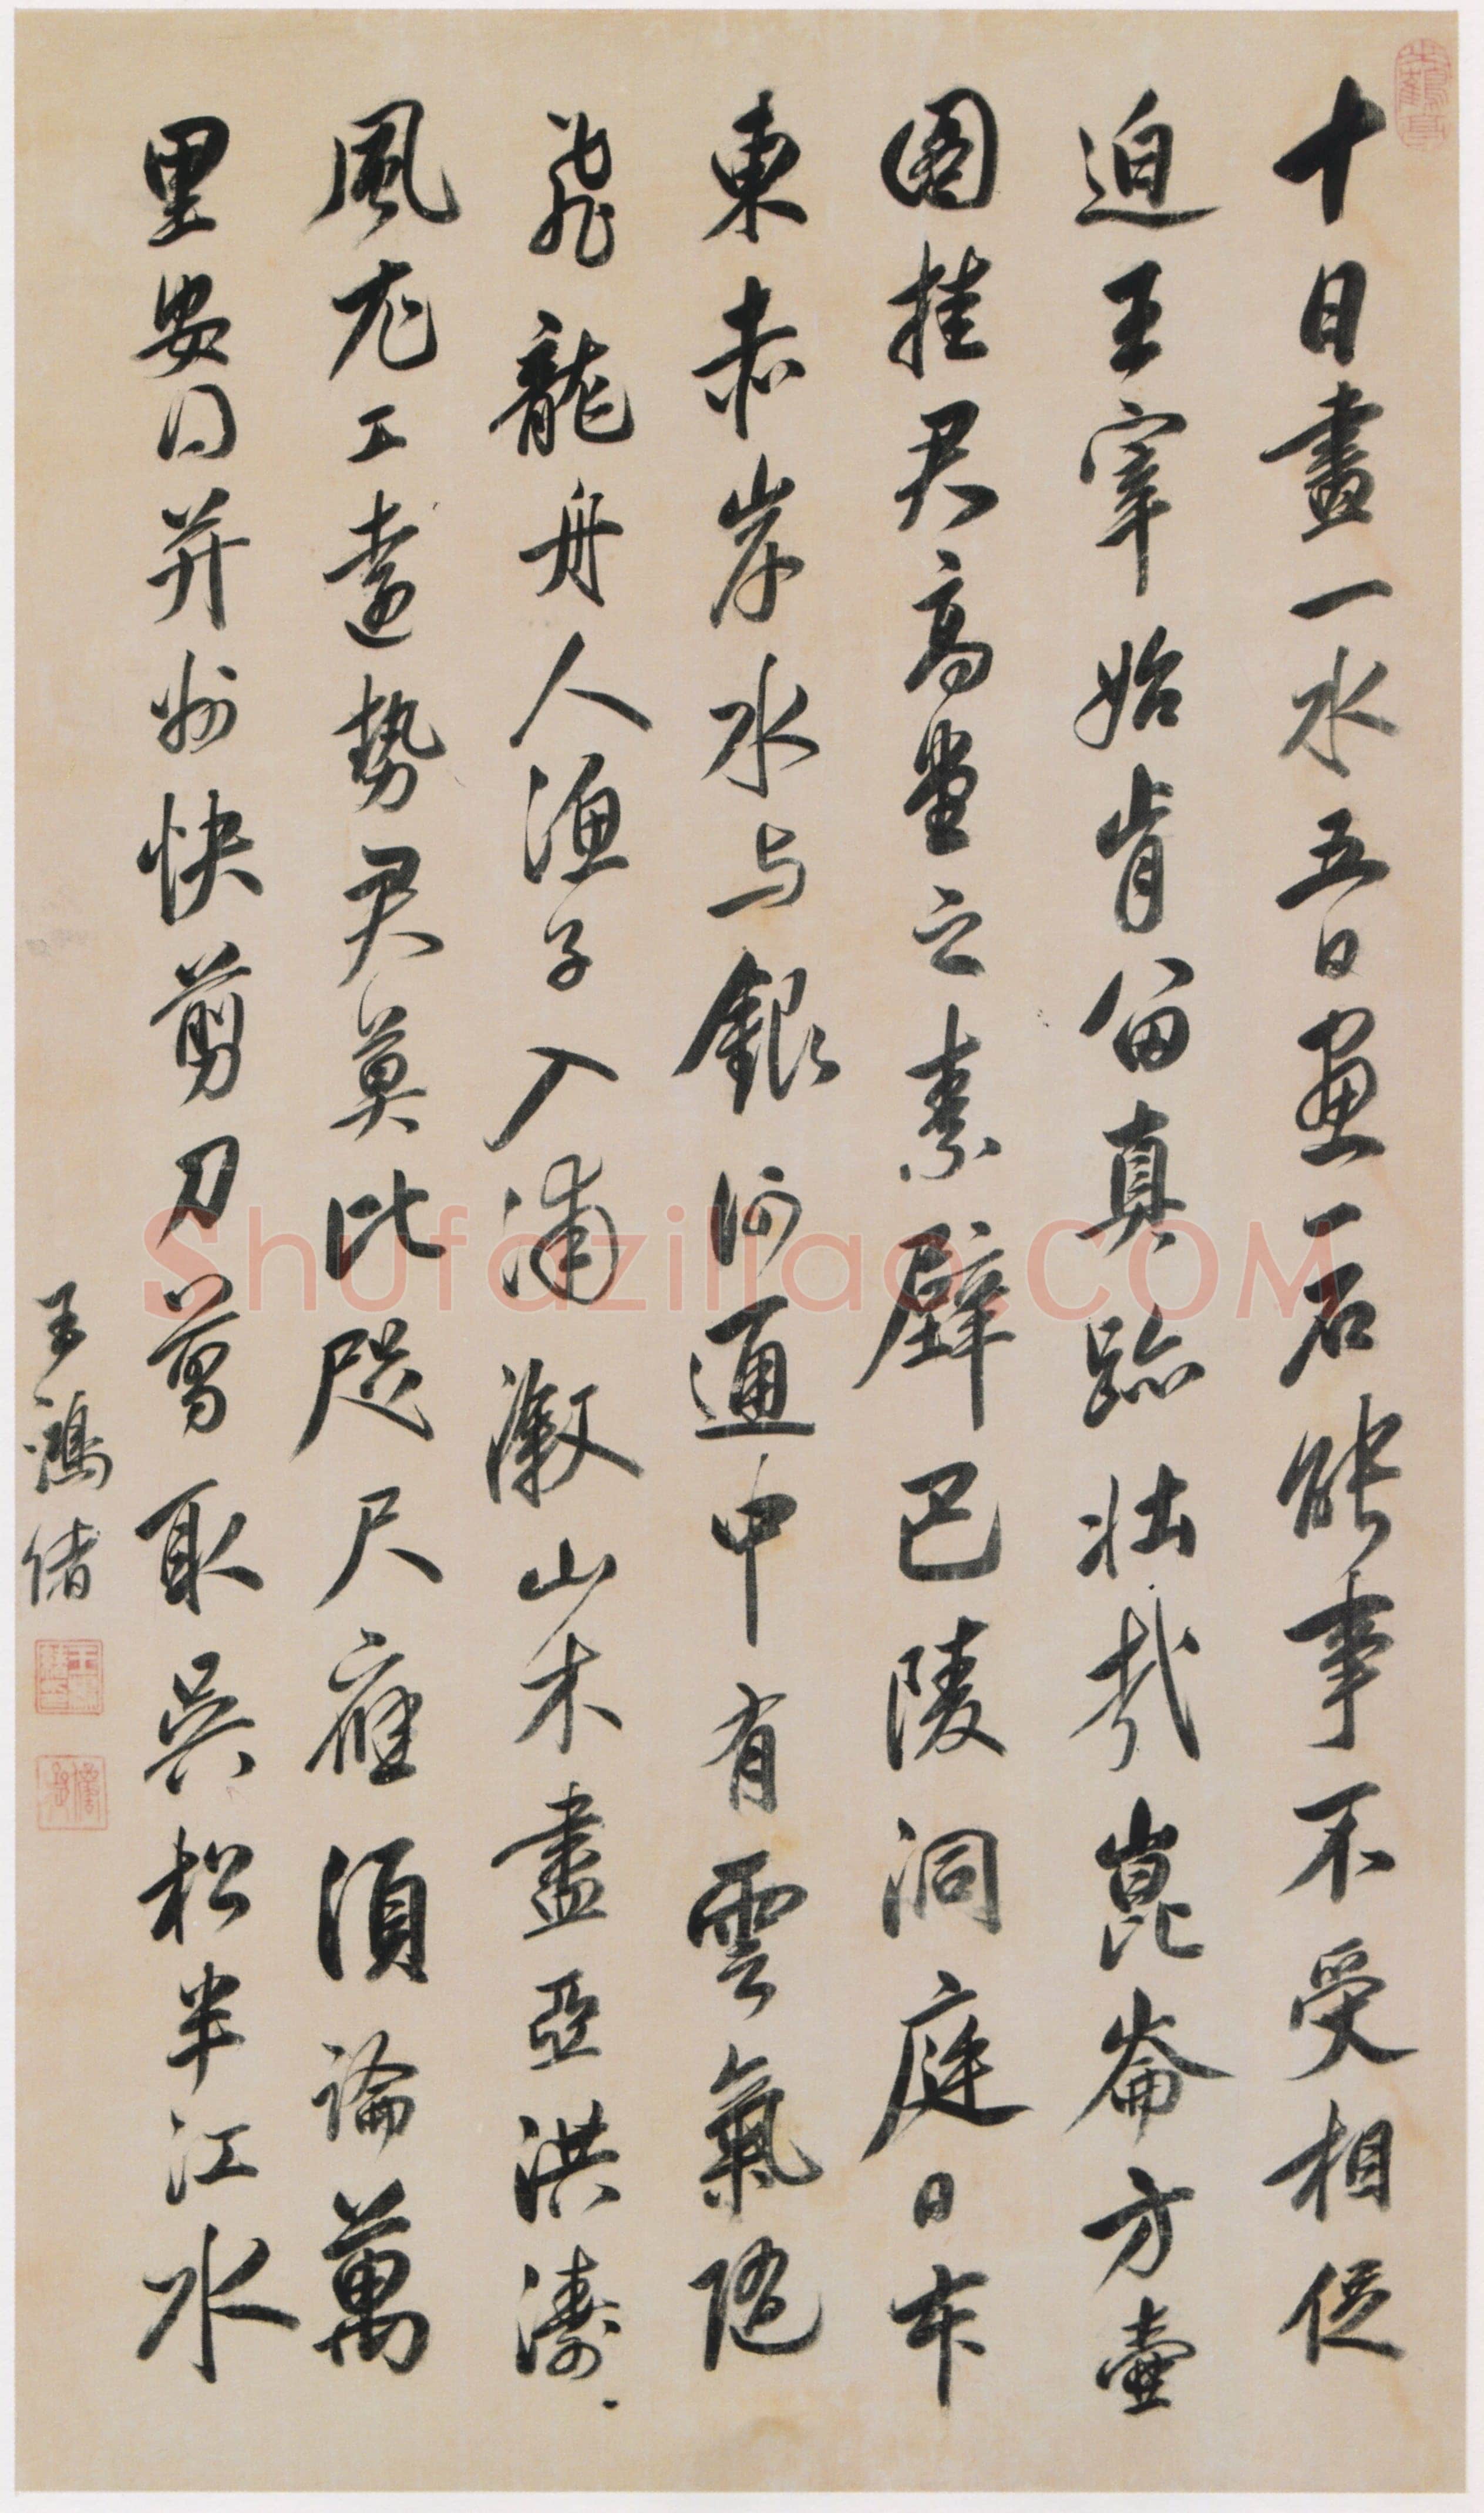 十日畫一水五日畫一石能事不受相促
迫王宰始肯留真跡壯哉崑崙方壺
圖挂君高堂之素壁巴陵洞庭日本
東赤岸水与銀河通中有雲氣隨
飛龍舟人漁子入浦溆山木盡亞洪濤
風尤工遠勢君莫比咫尺應須論萬
里安得并州快剪刀剪取吳松半江水
王鴻緒
Shufaziliao.COM